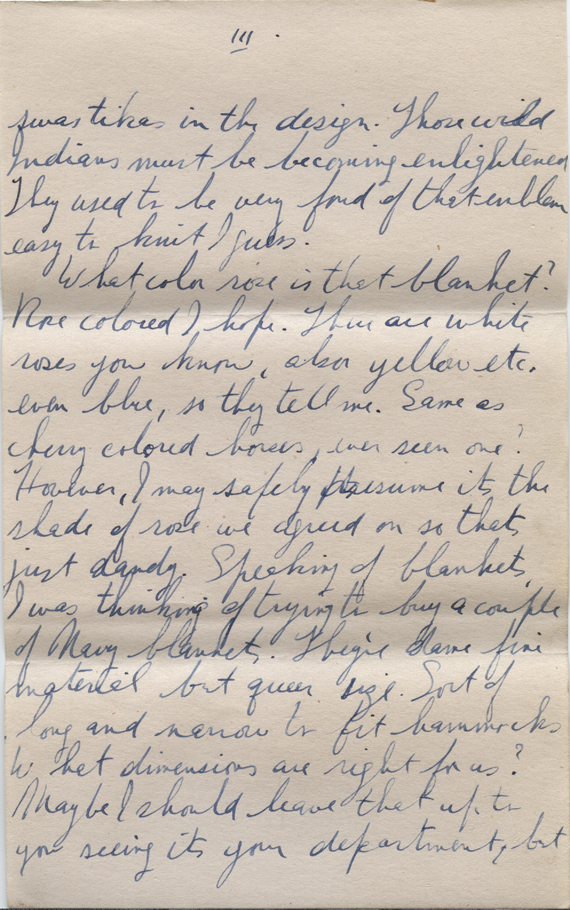 III.
swastikas in the design. Those wild
Indians must be becoming enlightened
They used to be very fond of that emblem
easy to knit I guess.
What color rose is that blanket?
Rose colored I hope. There are white
roses you know, also yellow etc.
even blue, so they tell me. Same as
cherry colored horses, ever seen one?
However, I may safely presume its the
shade of rose we agreed on so thats
just dandy. Speaking of blankets,
I was thinking of trying to buy a couple
of Navy blankets. They're damn fine
material but queer size. Sort of
long and narrow to fit hammocks
What dimensions are right for us?
Maybe I should leave that up to
you seeing its your department, but